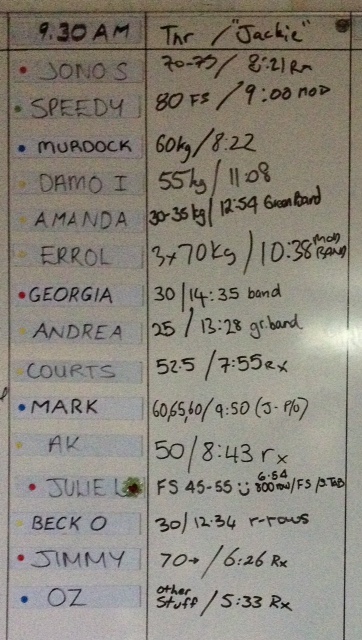 9.30 AM Thr / "Jackie"
JONO S 70-75 / 8:21 Rx
SPEEDY 80 FS / 9:00 MOD
MURDOCK 60kg / 8:22
DAMO I 55kg / 11:08
AMANDA 30-35kg / 12:54 Green Band
ERROL 3x70kg / 10:38 MOD BAND
GEORGIA 30 / 14:35 band
ANDREA 25 / 13:28 gr.band
COURTS 52.5 / 7:55 Rx
MARK 60,65,60 / 9:50 (J-P/O)
AK 50 / 8:43 rx
JULIE L FS 45-55 6:54 800 row / FS
BECK O 30 / 12:34 r-rows
JIMMY 70→ / 6:26 Rx
OZ other Stuff / 5:33 Rx